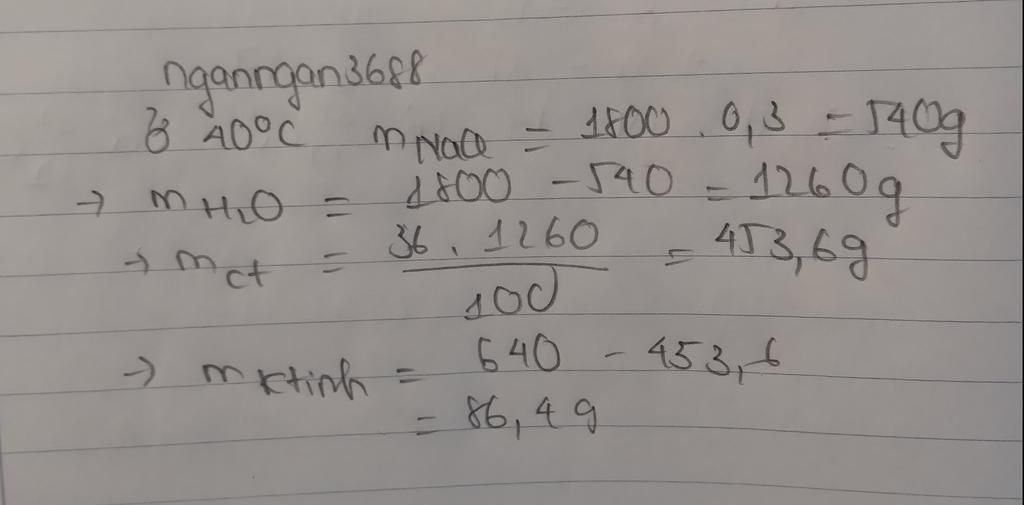 nganngan3688
Ở 40°C mNaCl = 1800 . 0,3 = 540g
→ mH2O = 1800 - 540 = 1260g
→ mct = 36 . 1260 / 100 = 453,6g
→ mktinh = 640 - 453,6
= 86,4g